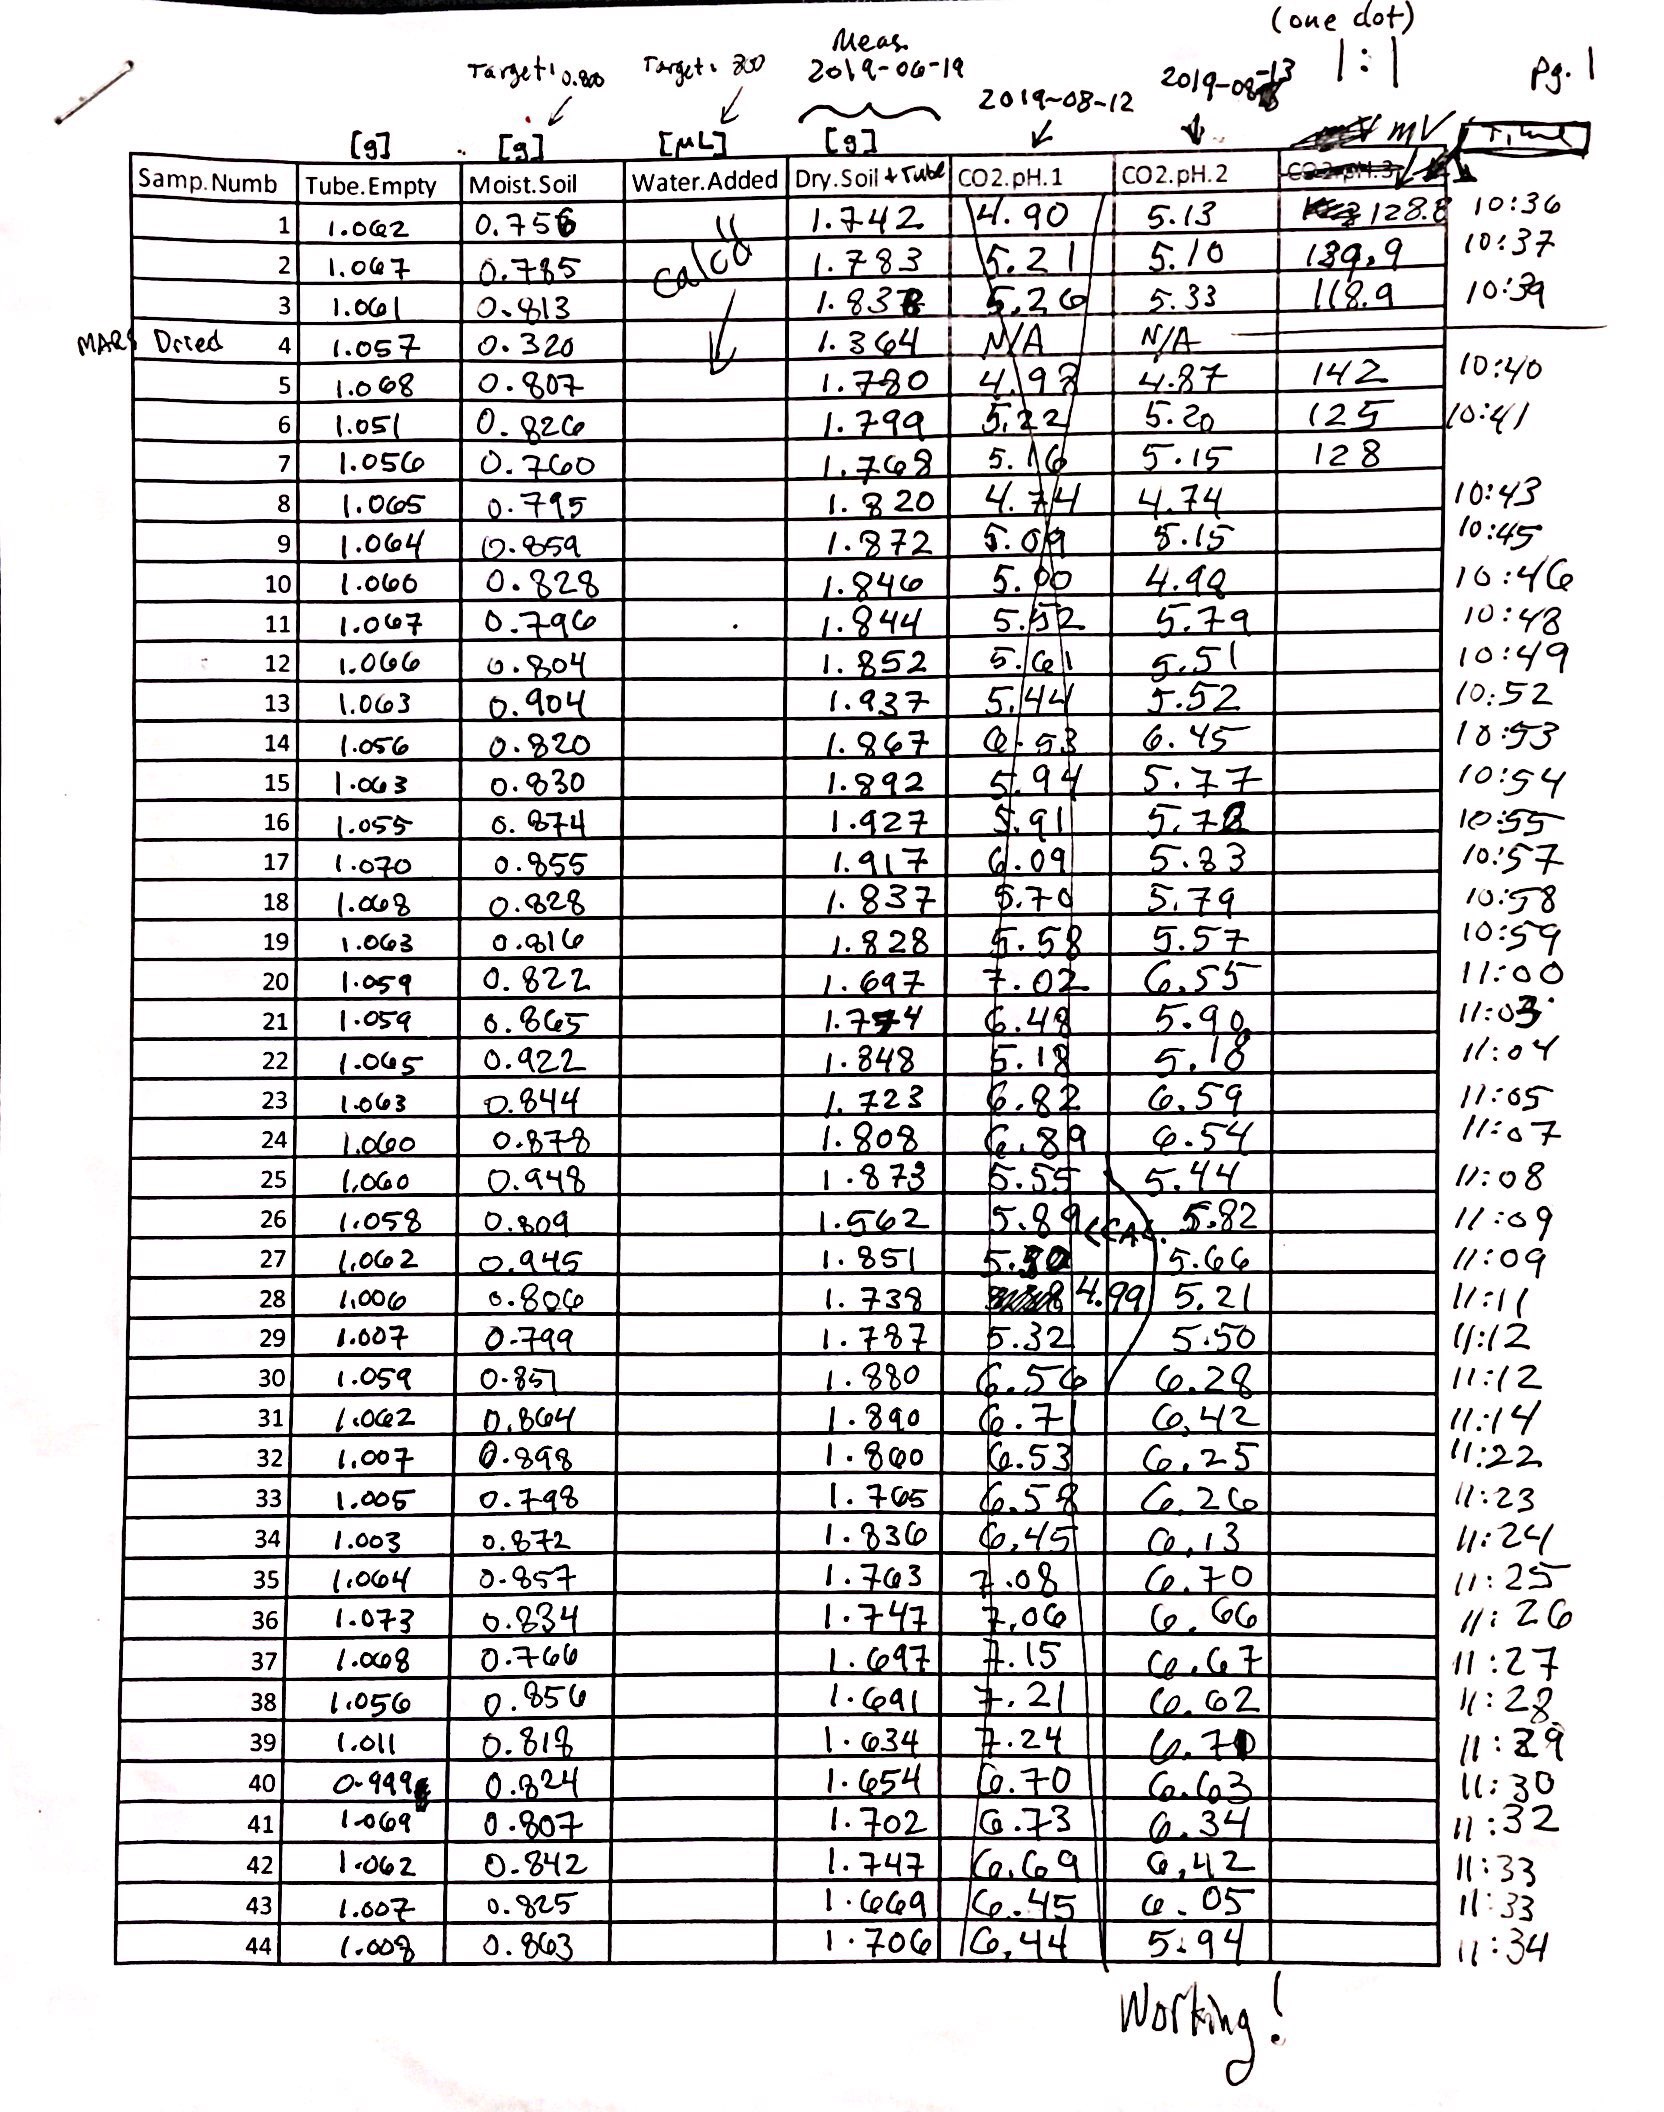 (one dot)
Meas.
Target: 0.800 Target: 800 2019-06-19 2019-08-12 2019-08-13 1:1 pg. 1
[g] [g] [µL] [g] mV Time
Samp.Numb Tube.Empty Moist.Soil Water.Added Dry.Soil + Tube CO2.pH.1 CO2.pH.2 CO2.pH.3
1 1.062 0.756 Calc'd 1.742 4.90 5.13 128.8 10:36
2 1.067 0.785 1.783 5.21 5.10 10:37
3 1.061 0.813 5.26 5.33 118.9 10:39
Dried 4 1.057 0.320 1.364 N/A N/A
5 1.068 0.807 1.780 4.98 4.87 142 10:40
6 1.051 0.826 1.799 5.22 5.20 125 10:41
7 1.056 0.760 1.768 5.16 5.15 128
8 1.065 0.795 1.820 4.74 4.74 10:43
9 1.064 0.859 1.872 5.09 5.15 10:45
10 1.060 0.828 1.846 5.00 4.98 10:46
11 1.067 0.796 1.844 5.52 5.79 10:48
12 1.066 0.804 1.852 5.61 5.51 10:49
13 1.063 0.904 1.937 5.44 5.52 10:52
14 1.056 0.820 1.867 6.53 6.45 10:53
15 1.063 0.830 1.892 5.94 5.77 10:54
16 1.055 0.874 1.927 5.91 10:55
17 1.070 0.855 1.917 6.09 5.83 10:57
18 1.068 0.828 1.837 5.70 5.79 10:58
19 1.063 0.816 1.828 5.58 5.57 10:59
20 1.059 0.822 1.697 7.02 6.55 11:00
21 1.059 0.865 1.774 6.48 5.90 11:03
22 1.065 0.922 1.848 5.18 5.18 11:04
23 1.063 0.844 1.723 6.82 6.59 11:05
24 1.060 0.878 1.808 6.89 6.54 11:07
25 1.060 0.948 1.873 5.55 5.44 11:08
26 1.058 0.809 1.562 5.89 <CAL. 5.82 11:09
27 1.062 0.945 1.851 5.66 11:09
28 1.006 0.806 1.738 4.99 5.21 11:11
29 1.007 0.799 1.787 5.32 5.50 11:12
30 1.059 0.851 1.880 6.56 6.28 11:12
31 1.062 0.864 1.890 6.71 6.42 11:14
32 1.007 0.898 1.860 6.53 6.25 11:22
33 1.005 0.798 1.765 6.58 6.26 11:23
34 1.003 0.872 1.836 6.45 6.13 11:24
35 1.064 0.857 1.763 7.08 6.70 11:25
36 1.073 0.834 1.747 7.06 6.66 11:26
37 1.068 0.766 1.697 7.15 6.67 11:27
38 1.056 0.856 1.691 7.21 6.62 11:28
39 1.011 0.818 1.634 7.24 11:29
40 0.999 0.824 1.654 6.70 6.63 11:30
41 1.069 0.807 1.702 6.73 6.34 11:32
42 1.062 0.842 1.747 6.69 6.42 11:33
43 1.007 0.825 1.669 6.45 6.05 11:33
44 1.008 0.863 1.706 6.44 5.94 11:34
Working!